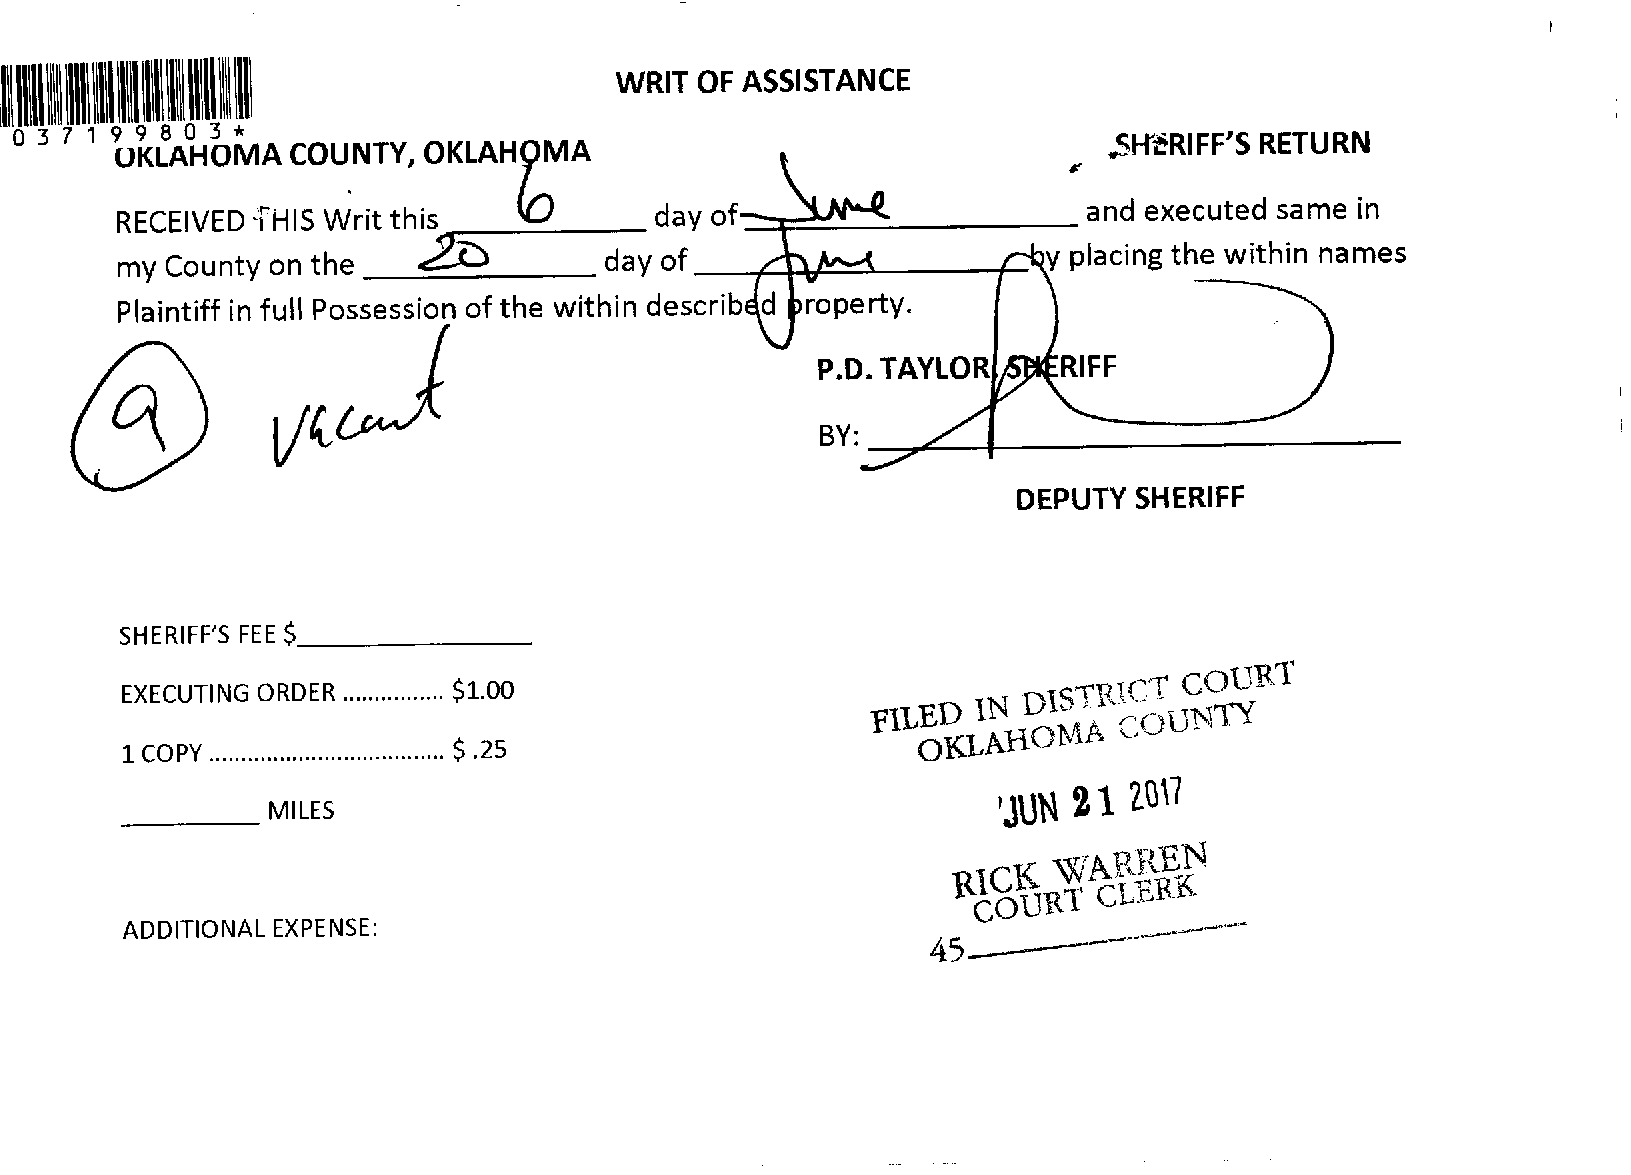 WRIT OF ASSISTANCE
037199803*
OKLAHOMA COUNTY, OKLAHOMA SHERIFF'S RETURN
RECEIVED THIS Writ this 6 day of June and executed same in
my County on the 20 day of June by placing the within names
Plaintiff in full Possession of the within described property.
P.D. TAYLOR, SHERIFF
9 Vacant
BY:
DEPUTY SHERIFF
SHERIFF'S FEE $
EXECUTING ORDER ................ $1.00
1 COPY ..................................... $ .25
MILES
ADDITIONAL EXPENSE:
FILED IN DISTRICT COURT
OKLAHOMA COUNTY
JUN 21 2017
RICK WARREN
COURT CLERK
45